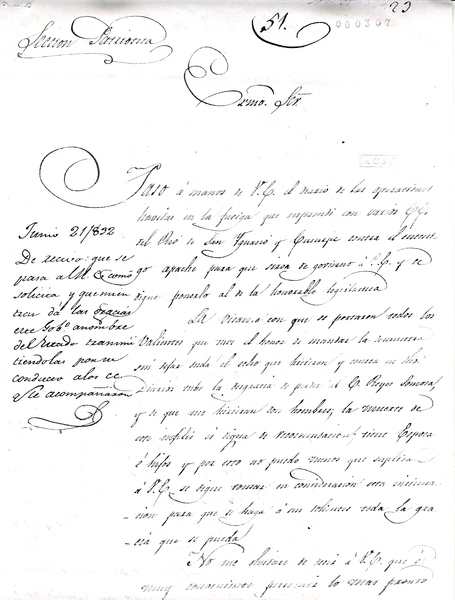 23
51.
000307
Seccion Patriotica
Exmo. Sor
Paso á manos de V.E. el diario de las operaciones
havidas en la fatiga que emprendí con varios CC.
del Rio de San Ygnacio y Cucurpe contra el enemi-
go apache para que sirva de govierno á V.E. y se
digne ponerlo al de la honorable legislatura
La vizarria con que se portaron todos los
Valientes que tuve el honor de mandar la demuestra
sin dejar duda el echo que hicieron y entra en mi
Diario solo la desgracia de perder al C. Reyes Somoza,
y de que me hirieran dos hombres; la muerte de
este infeliz es digna de recomendarse; tiene Esposa
é hijos y por esto no puedo menos que suplicar
á V.E. se digne tomar en consideración esta insinua-
-ción para que se haga á su solicitud toda la gra-
cia que se pueda
No me olvidare de decir á V.E. que es
muy conveniente perseguir lo mas pronto
Junio 21/832
De recivo: que se
pasa al H. C como
solicita y que mien
tras da las gracias
este Gobº. a nombre
del Estado trasmi
tiendolas por su
conducto a los cc
q.e le acompañaron